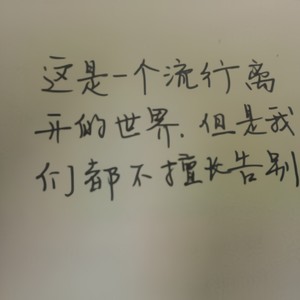 这是一个流行离
开的世界.但是我
们都不擅长告别